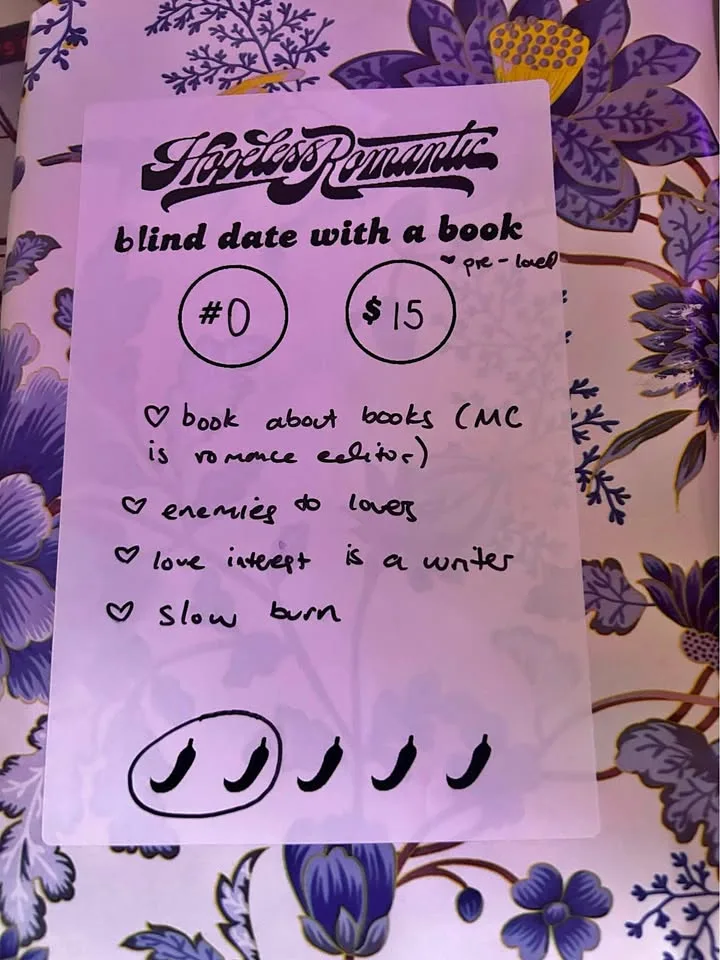 Hopeless Romantic
blind date with a book
♥ pre-loved
#0 $15
♡ book about books (MC
is romance editor)
♡ enemies to lovers
♡ love interest is a writer
♡ slow burn